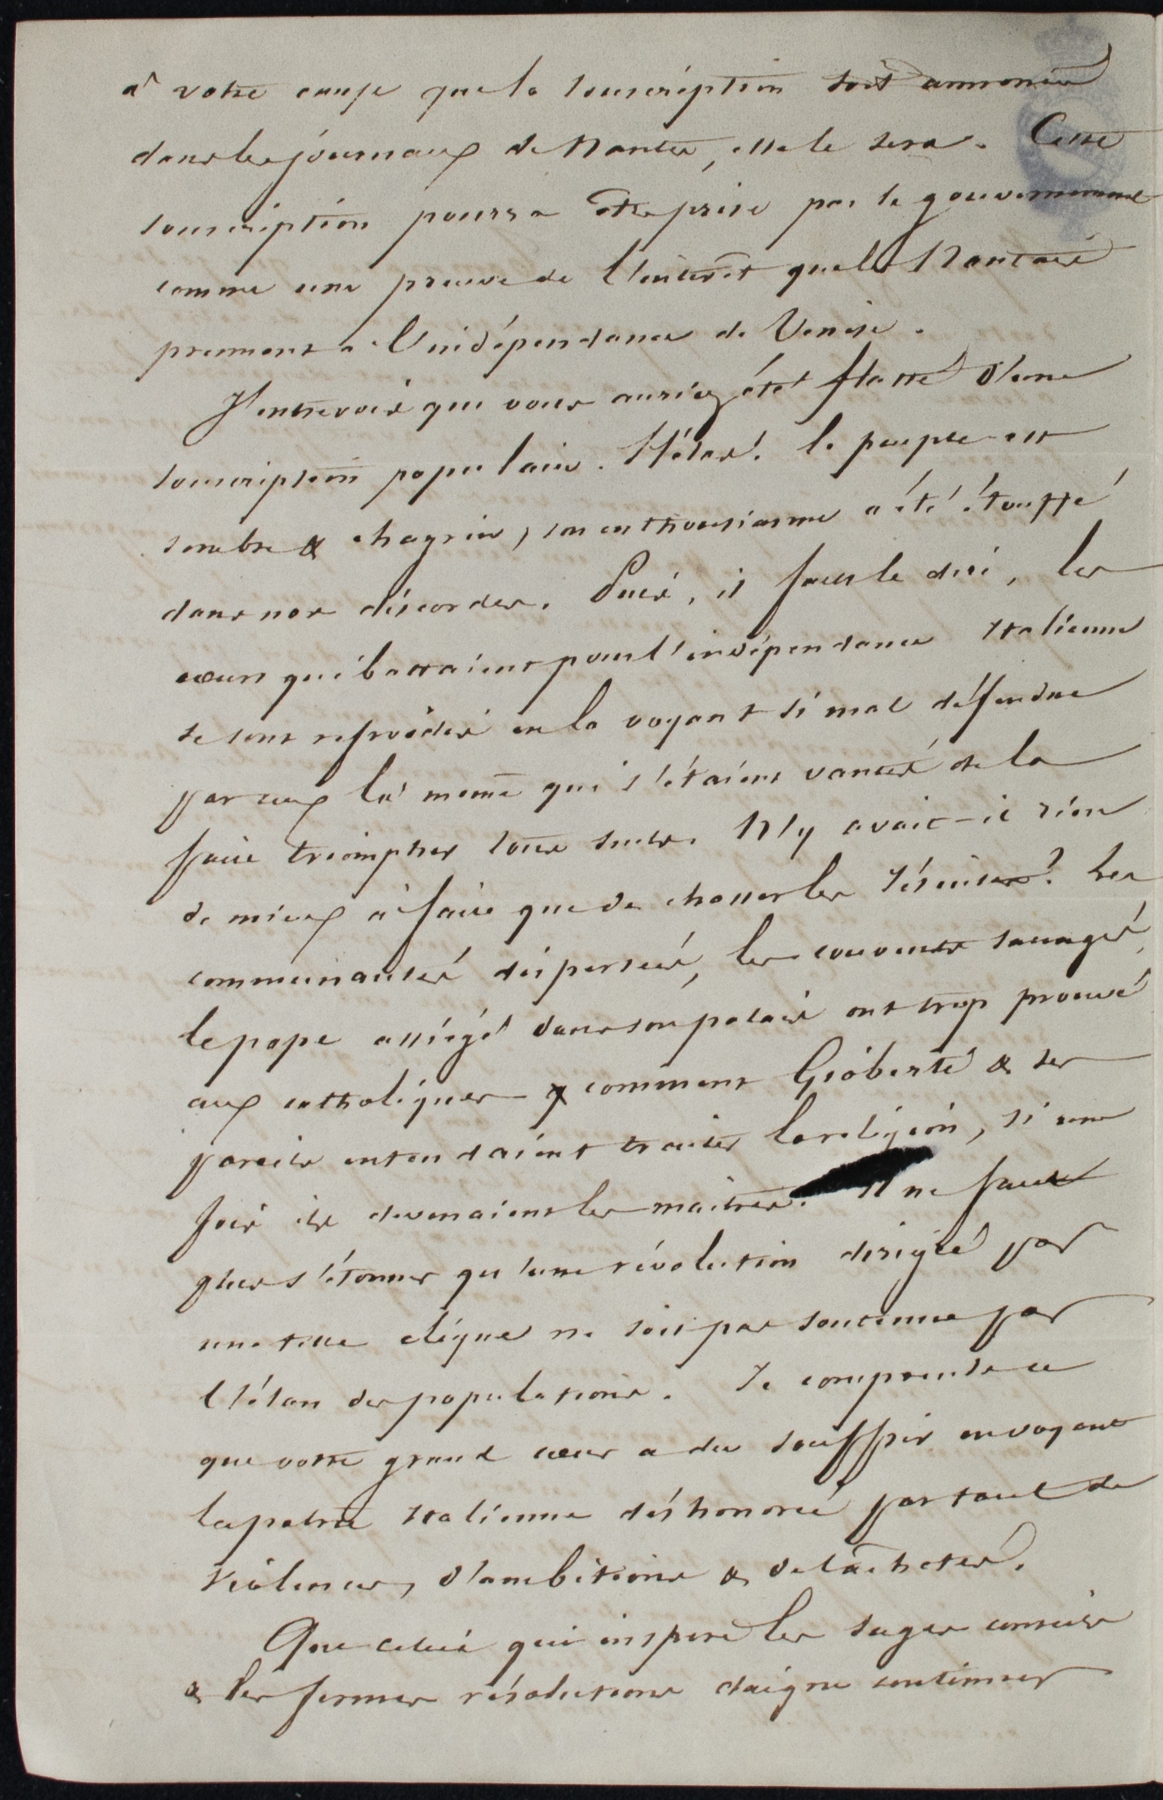 à votre cause que la souscription soit annoncée
dans les journaux de Nantes, elle le sera. Cette
souscription pourra être prise par le gouvernement
comme une preuve de l'intérêt que les Nantais
prennent à l'indépendance de Venise.
J'entrevois que vous auriez été flatté d'une
souscription populaire. Hélas! le peuple est
sombre & chagrin, son enthousiasme a été étouffé
dans nos discordes. Puis, il faut le dire, les
cœurs qui battaient pour l'indépendance Italienne
se sont refroidis en la voyant si mal défendue
par ceux là même qui s'étaient vantés de la
faire triompher tous seuls. N'y avait-il rien
de mieux à faire que de chasser les Jésuites? Les
communautés dispersées, les couvents saccagés,
le pape assiégé dans son palais ont trop prouvé
aux catholiques comment Gioberti & ses
pareils entendaient traiter la religion, si une
fois ils devenaient les maitres. Il ne faut
plus s'étonner qu'une révolution dirigée par
une telle clique ne soit pas soutenue par
l'élan des populations. Je comprends ce
que votre grand cœur a du souffrir en voyant
la patrie Italienne déshonorée par tant de
violences, d'ambitions & de lâchetés.
Que celui qui inspire les sages conseils
& les fermes résolutions daigne continuer